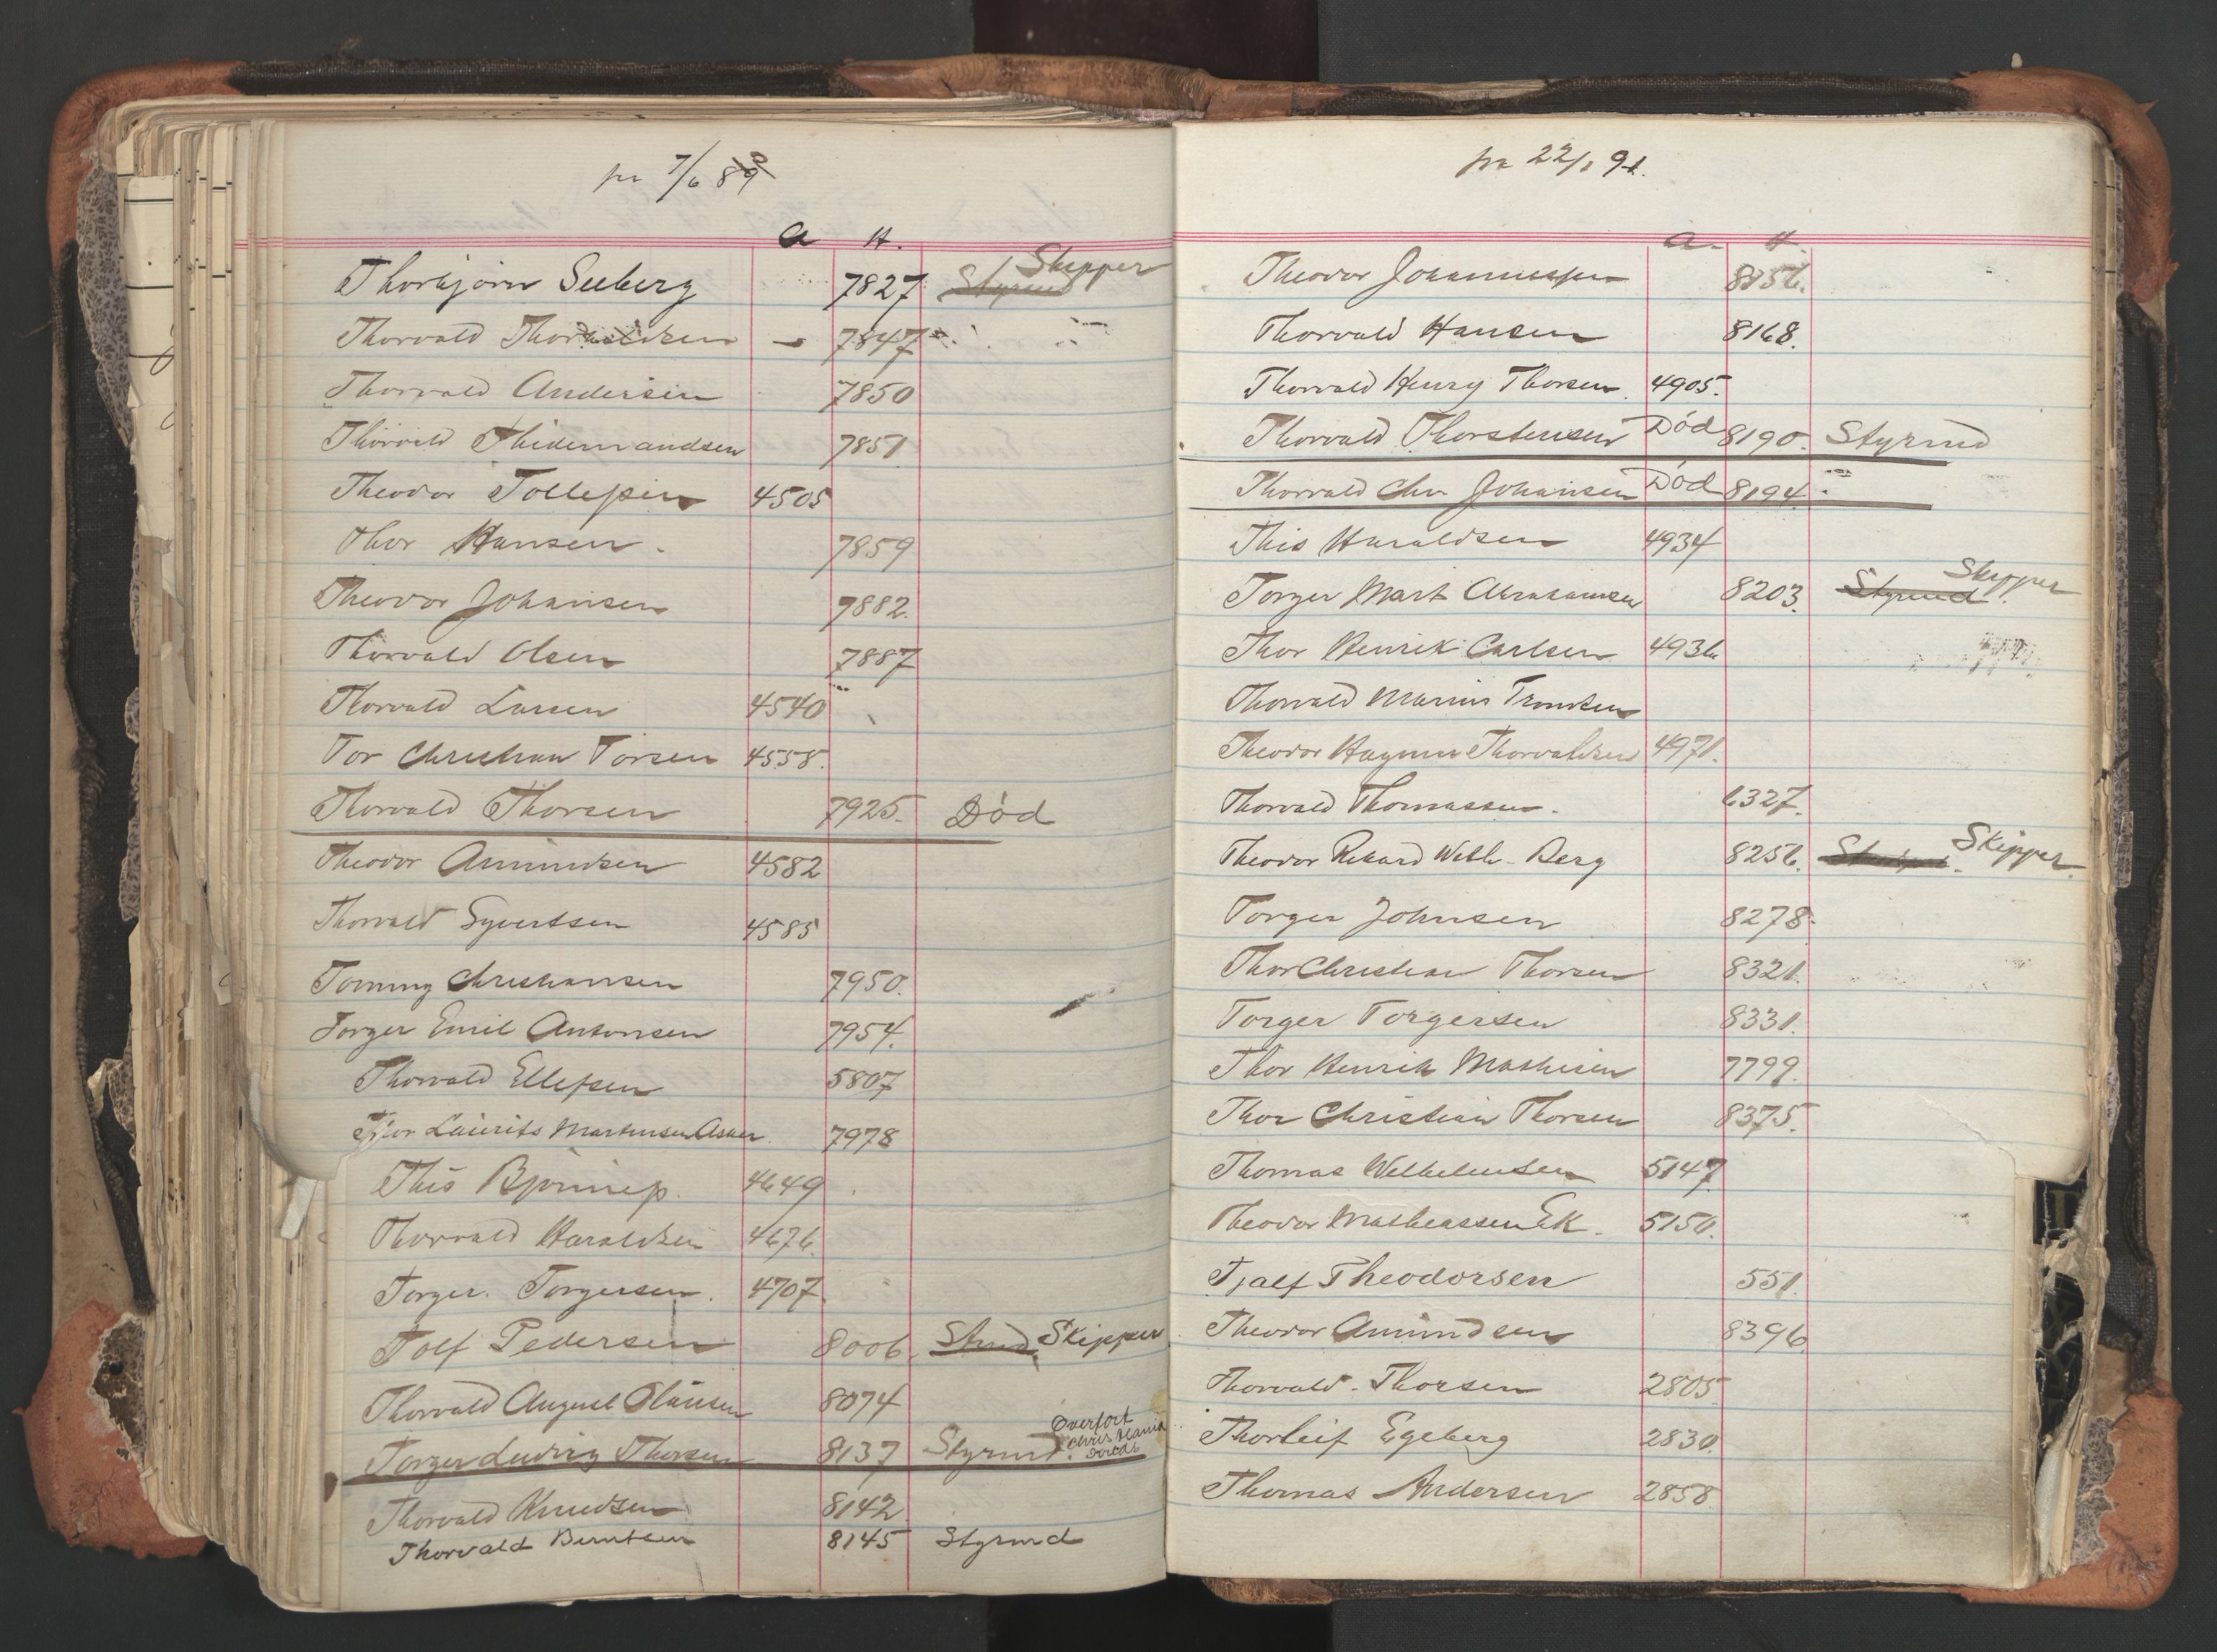 pr 7/6 89
a H.
Thorbjørn Seeberg 7827 Styrmd Skipper
Thorvald Thorvaldsen - 7847
Thorvald Andersen 7850
Thorvald Thidemandsen 7851
Theodor Tollefsen 4505
Thor Hansen. 7859
Theodor Johansen 7882.
Thorvald Olsen 7887
Thorvald Larsen 4540
Tor Christian Torsen 4558.
Thorvald Thorsen 7925. Død
Theodor Amundsen 4582
Thorvald Syvertsen 4585
Tommy Christiansen 7950.
Torger Emil Antonsen 7954.
Thorvald Ellefsen 5807
Thor Laurits Martinsen Asker 7978
This Bjønnes. 4649
Thorvald Haraldsen 4676.
Torger. Torgersen. 4707.
Tolf Pedersen 8006. Strmd. Skipper
Thorvald August Olausen 8074
Torger Ludvig Thorsen 8137 Styrmd. Overført Christiania
Thorvald Knudsen 8142
Thorvald Berntsen 8145 Styrmd
pr 22/1 91.
a. H
Theodor Johannessen 8156.
Thorvald Hansen 8168.
Thorvald Henry Thorsen. 4905.
Thorvald Thorstensen Død 8190. Styrmd
Thorvald Chr. Johansen Død 8194.
This Haraldsen 4934
Torger Mart Abrahamsen 8203. Styrmd. Skipper
Thor Henrik Carlsen 4936
Thorvald Marius Tronsen
Theodor Hagman Thorvaldsen 4971.
Thorvald Thomassen. 6327.
Theodor Rikard Wilh. Berg 8256. Skipper.
Torger Johnsen 8278.
Thor Christian Thorsen 8321.
Torger Torgersen 8331.
Thor Henrik Mathisen 7799.
Thor Christian Thorsen 8375.
Thomas Wilhelmsen 5147
Theodor Mathiassen Ek. 5150.
Tjalf Theodorsen 551.
Theodor Amundsen 8396.
Thorvald. Thorsen 2805
Thorleif Egeberg 2830.
Thomas Andersen 2858